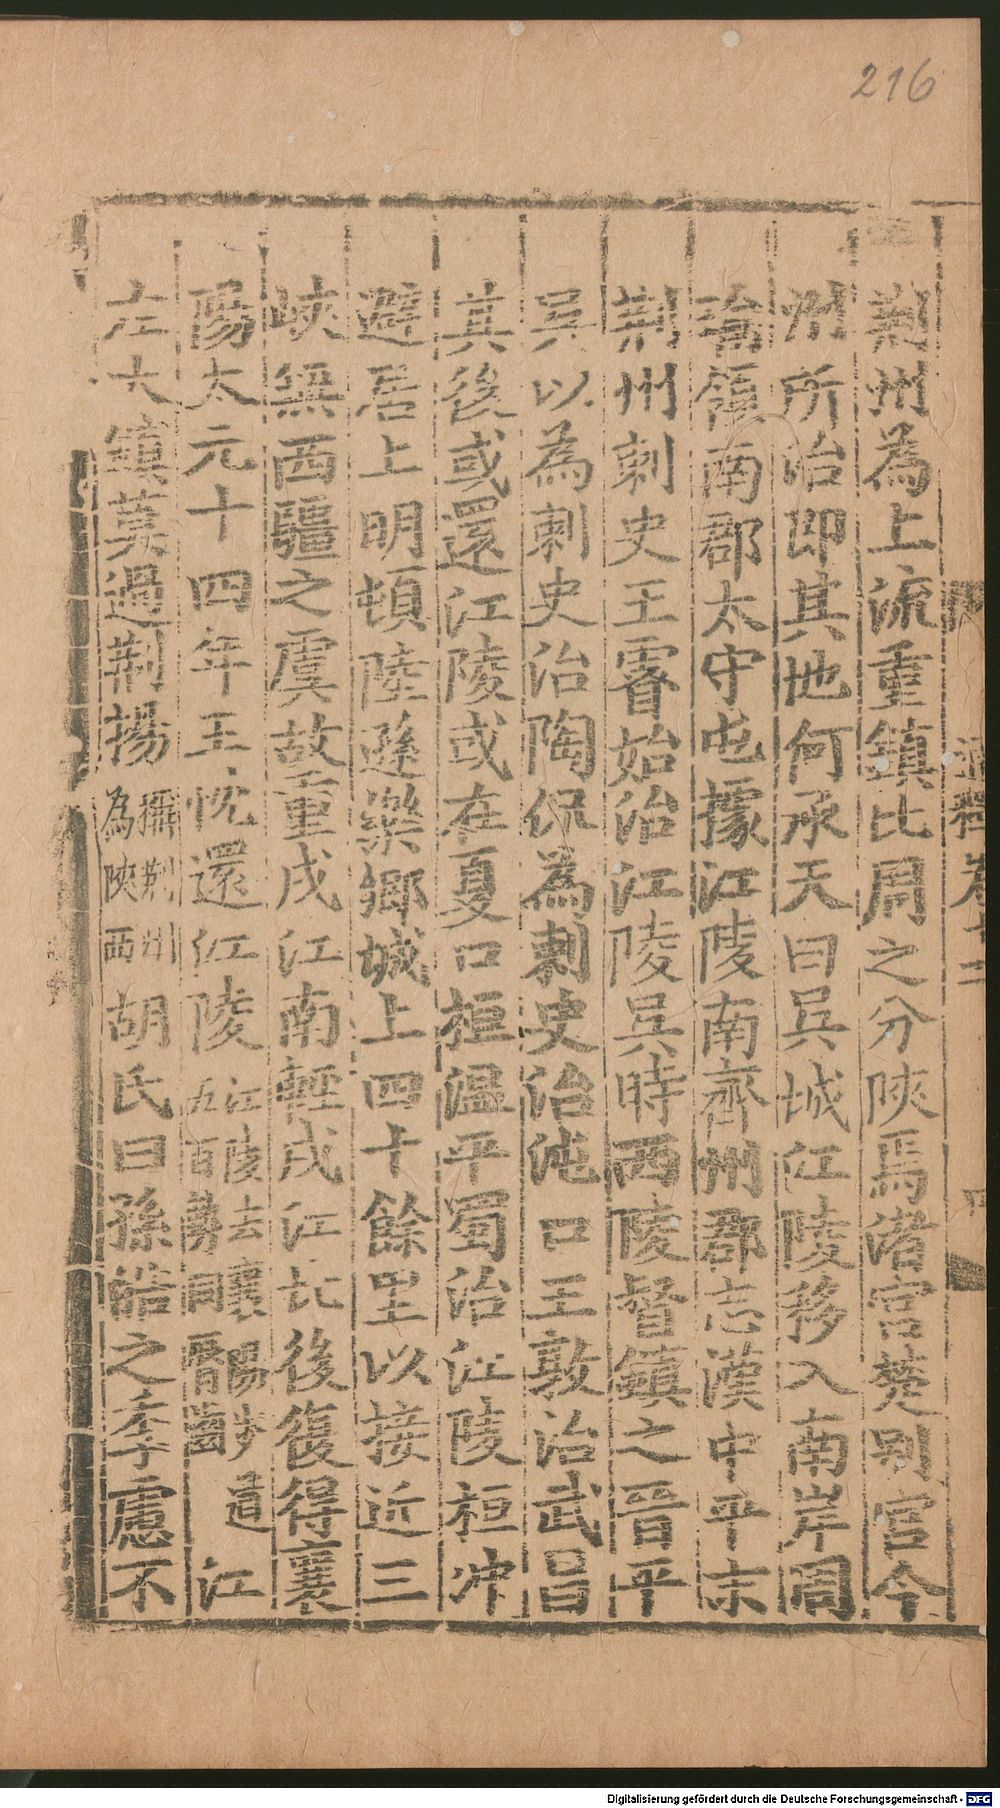 216
荆州為上流重鎮比周之分陝焉渚宮楚别宮今
州所治即其地何承天曰吳城江陵移入南岸周
瑜領南郡太守屯據江陵南齊州郡志漢中平末
荆州刺史王睿始治江陵吳時西陵督鎮之晉平
吳以為刺史治陶侃為刺史治沌口王敦治武昌
其後或還江陵或在夏口桓溫平蜀治江陵桓冲
避居上明頓陸遜樂鄉城上四十餘里以接近三
峽無西疆之虞故重戍江南輕戍江北後復得襄
陽太元十四年王忱還江陵江陵去襄陽步道五百勢同脣齒江
左大鎮莫過荆揚攝荆州為陝西胡氏曰孫皓之季慮不
Digitalisierung gefördert durch die Deutsche Forschungsgemeinschaft - DFG